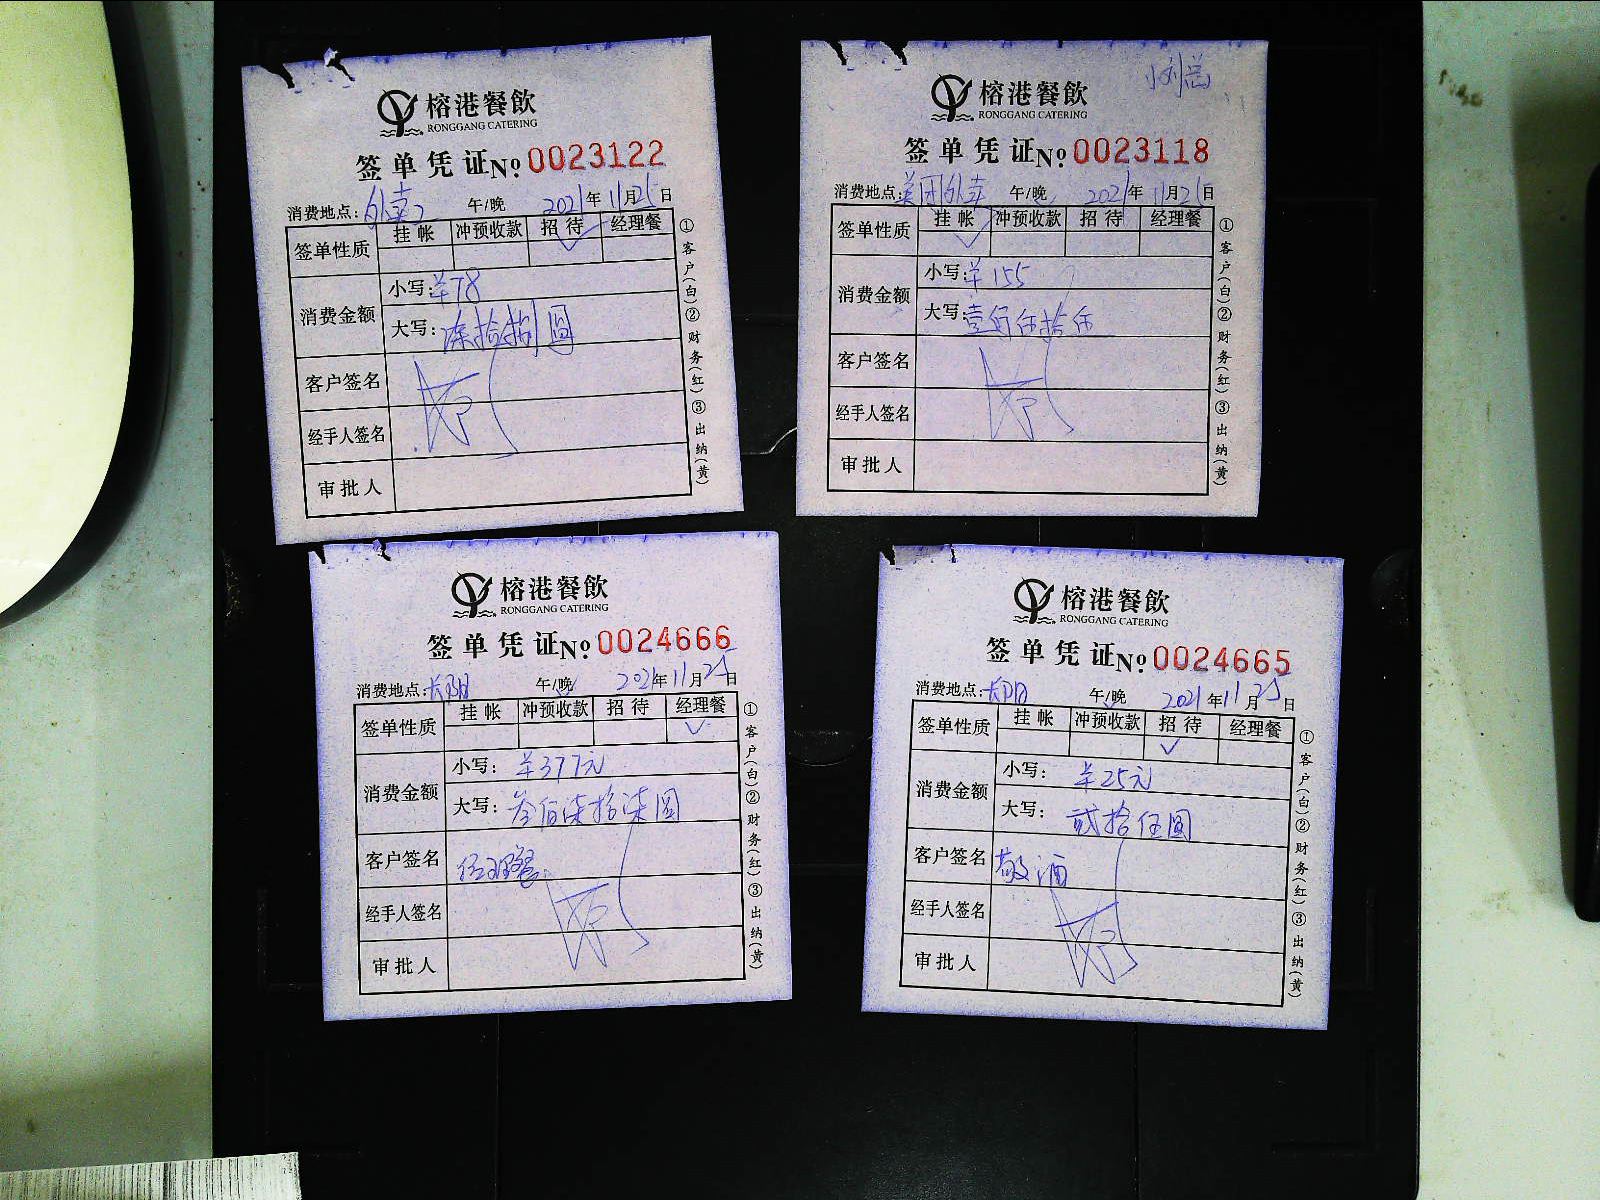 榕港餐飲
RONGGANG CATERING
签单凭证 No. 0023122
消费地点: 外卖 午/晚 2021年11月25日
签单性质 挂帐 冲预收款 招待 经理餐
✓
消费金额 小写: ¥78
大写: 柒拾捌圆
客户签名
经手人签名
审批人
①客户(白)②财务(红)③出纳(黄)
小刘总
榕港餐飲
RONGGANG CATERING
签单凭证 No. 0023118
消费地点: 美团外卖 午/晚 2021年11月25日
签单性质 挂帐 冲预收款 招待 经理餐
✓
消费金额 小写: ¥155
大写: 壹佰伍拾伍
客户签名
经手人签名
审批人
①客户(白)②财务(红)③出纳(黄)
榕港餐飲
RONGGANG CATERING
签单凭证 No. 0024666
消费地点: 午/晚 2021年11月25日
签单性质 挂帐 冲预收款 招待 经理餐
✓
消费金额 小写: ¥377元
大写: 叁佰柒拾柒圆
客户签名 经理餐
经手人签名
审批人
①客户(白)②财务(红)③出纳(黄)
榕港餐飲
RONGGANG CATERING
签单凭证 No. 0024665
消费地点: 午/晚 2021年11月25日
签单性质 挂帐 冲预收款 招待 经理餐
✓
消费金额 小写: ¥25元
大写: 贰拾伍圆
客户签名 敬酒
经手人签名
审批人
①客户(白)②财务(红)③出纳(黄)